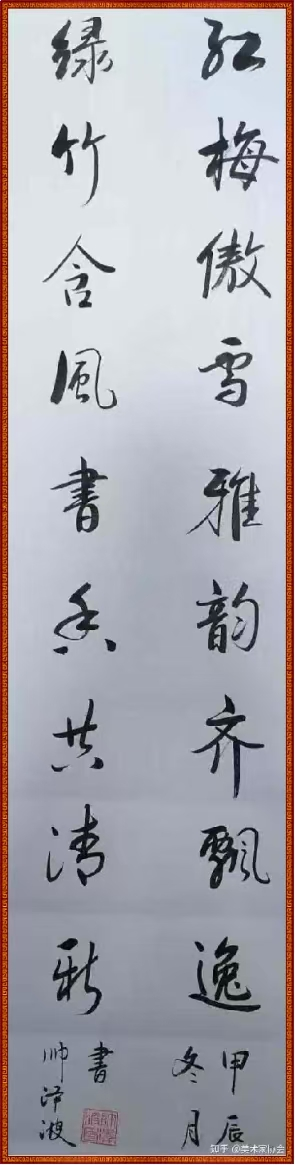 红梅傲雪雅韵齐飘逸
甲辰
冬月
绿竹含風書香共清新
書
帅泽波
知乎 @美术家协会